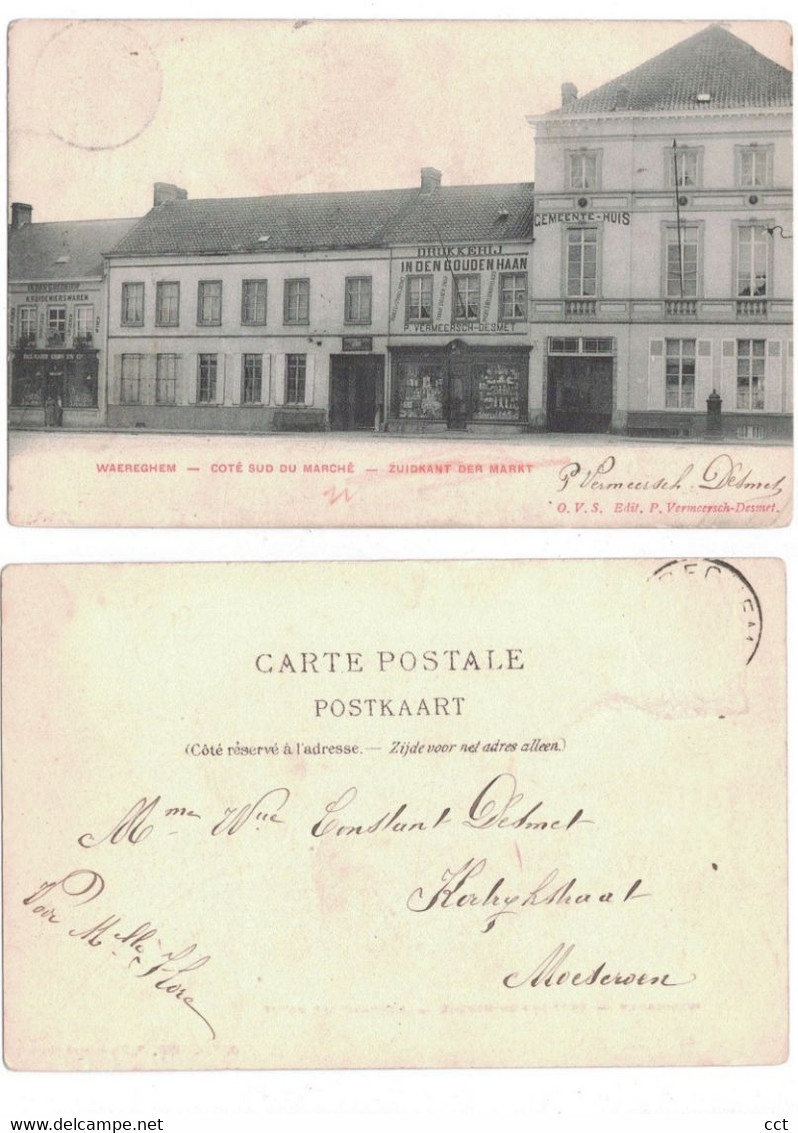 IN DEN GOUDEN HOP
KRUIDENIERSWAREN
DRUKKERIJ
IN DEN GOUDEN HAAN
P. VERMEERSCH-DESMET
GEMEENTE-HUIS
WAEREGHEM — COTÉ SUD DU MARCHÉ — ZUIDKANT DER MARKT
P Vermeersch-Desmet
O. V. S. Edit. P. Vermeersch-Desmet.
CARTE POSTALE
POSTKAART
(Côté réservé à l'adresse. — Zijde voor het adres alleen.)
Mme Wue Constant Desmet
Kortrijkstraat
Moescroen
Voor Melle Flore
cct